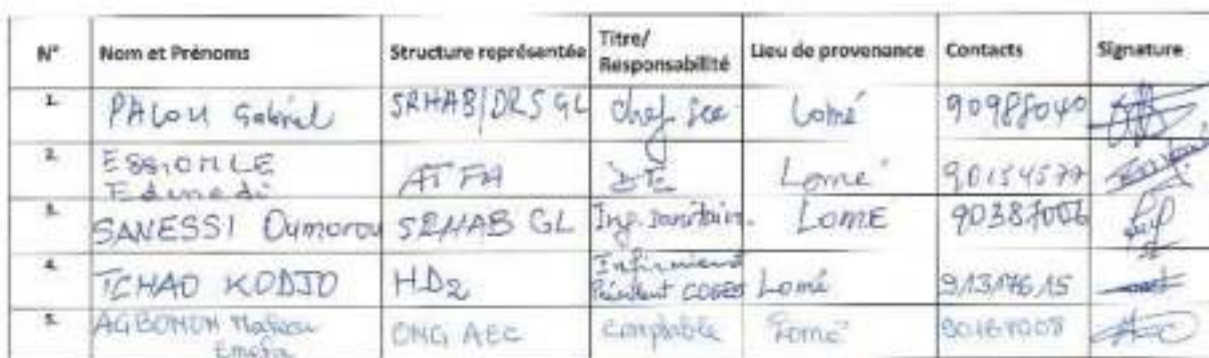 N° Nom et Prénoms Structure représentée Titre/ Responsabilité Lieu de provenance Contacts Signature
1. PALOU Gabriel SRHAB/DRS GL Chef sce Lomé 90988040
2. ESSIOMLE ATFA DTE Lomé 90154577
3. SANESSI Oumorou SRHAB GL Ing. sanitaire. LOME 90387006
4. TCHAO KODJO HD2 Infirmier Président COGES Lomé 91317615
5. AGBONON ONG AEC comptable Lomé 90167008